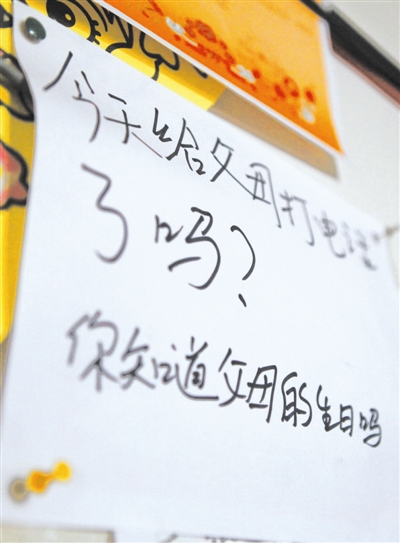 今天给父母打电话
了吗?
你知道父母的生日吗